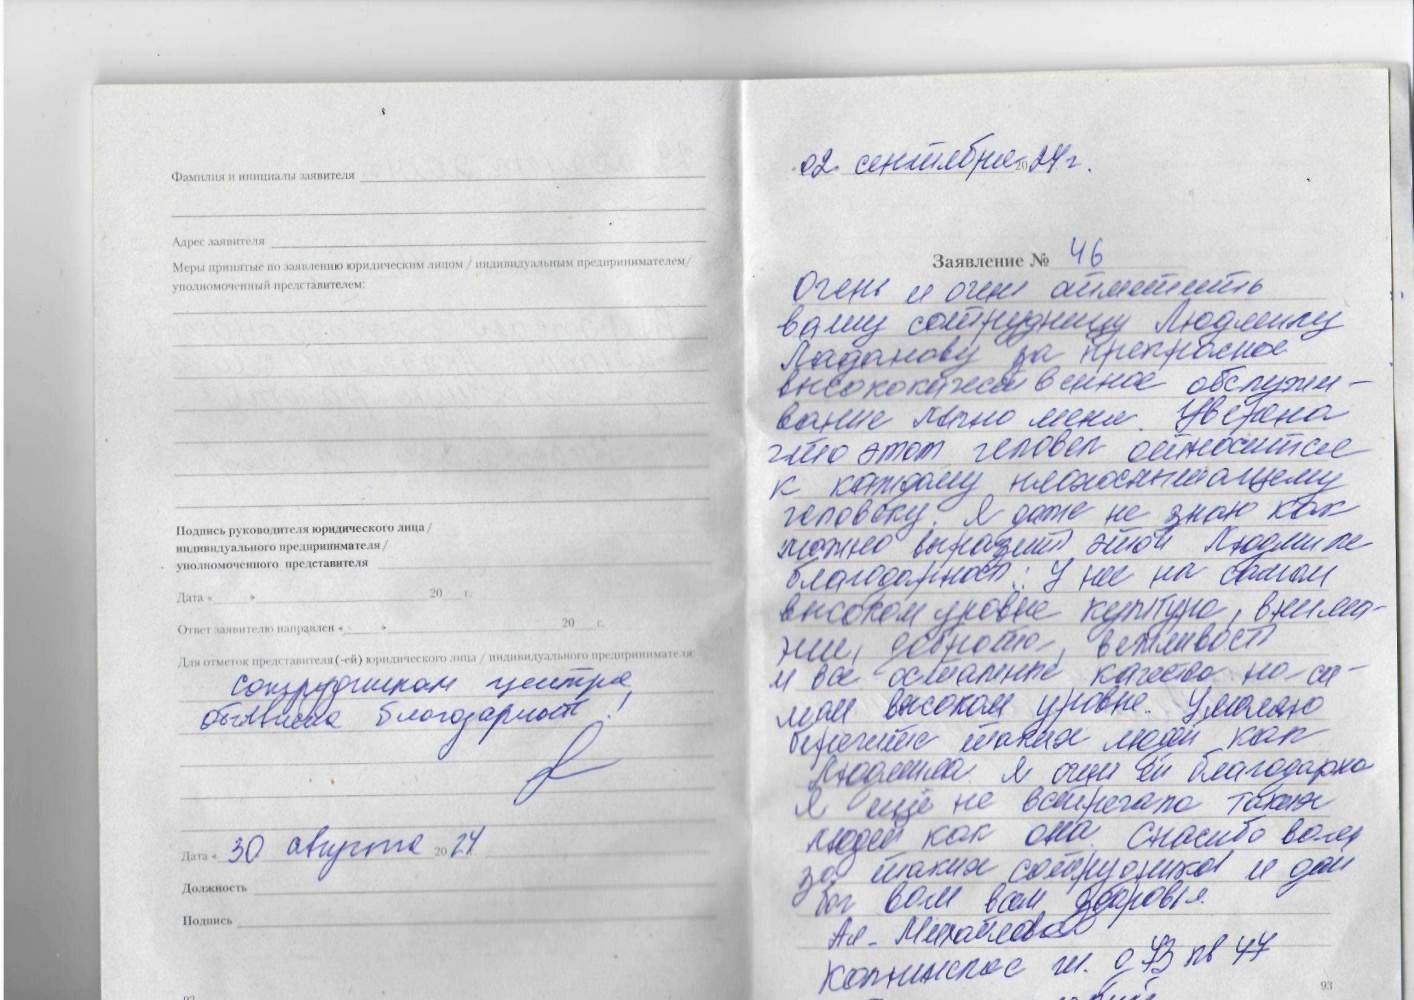 Фамилия и инициалы заявителя
Адрес заявителя
Меры принятые по заявлению юридическим лицом / индивидуальным предпринимателем/
уполномоченный представителем:
Подпись руководителя юридического лица /
индивидуального предпринимателя /
уполномоченного представителя
Дата « » 20 г.
Ответ заявителю направлен « » 20 г.
Для отметок представителя (-ей) юридического лица / индивидуального предпринимателя
Сотрудникам центра
объявлена благодарность!
Дата « 30 августа 20 24
Должность
Подпись
02 сентября 2024 г.
Заявление № 46
Очень и очень отметить
вашу сотрудницу Людмилу
Ладанову за прекрасное
высококачественное обслужи-
вание лично меня. Уверена
что этот человек относится
к каждому
человеку. Я даже не знаю как
можно выразить этой Людмиле
благодарность: У нее на самом
высоком уровне культура, внима-
ние, доброта, вежливость
и все остальные качества на са-
мом высоком уровне. Умоляю
берегите таких людей как
Людмила. Я очень ей благодарна
Я ещё не встречала таких
людей как она. Спасибо вам
за таких сотрудников и дай
бог вам всем здоровья.
Михайлова
ш. д 73 кв 47
93